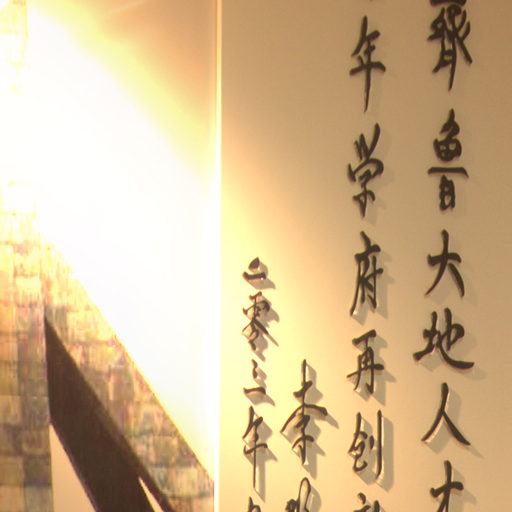 齊鲁大地人才
年学府再创
李
二零三年